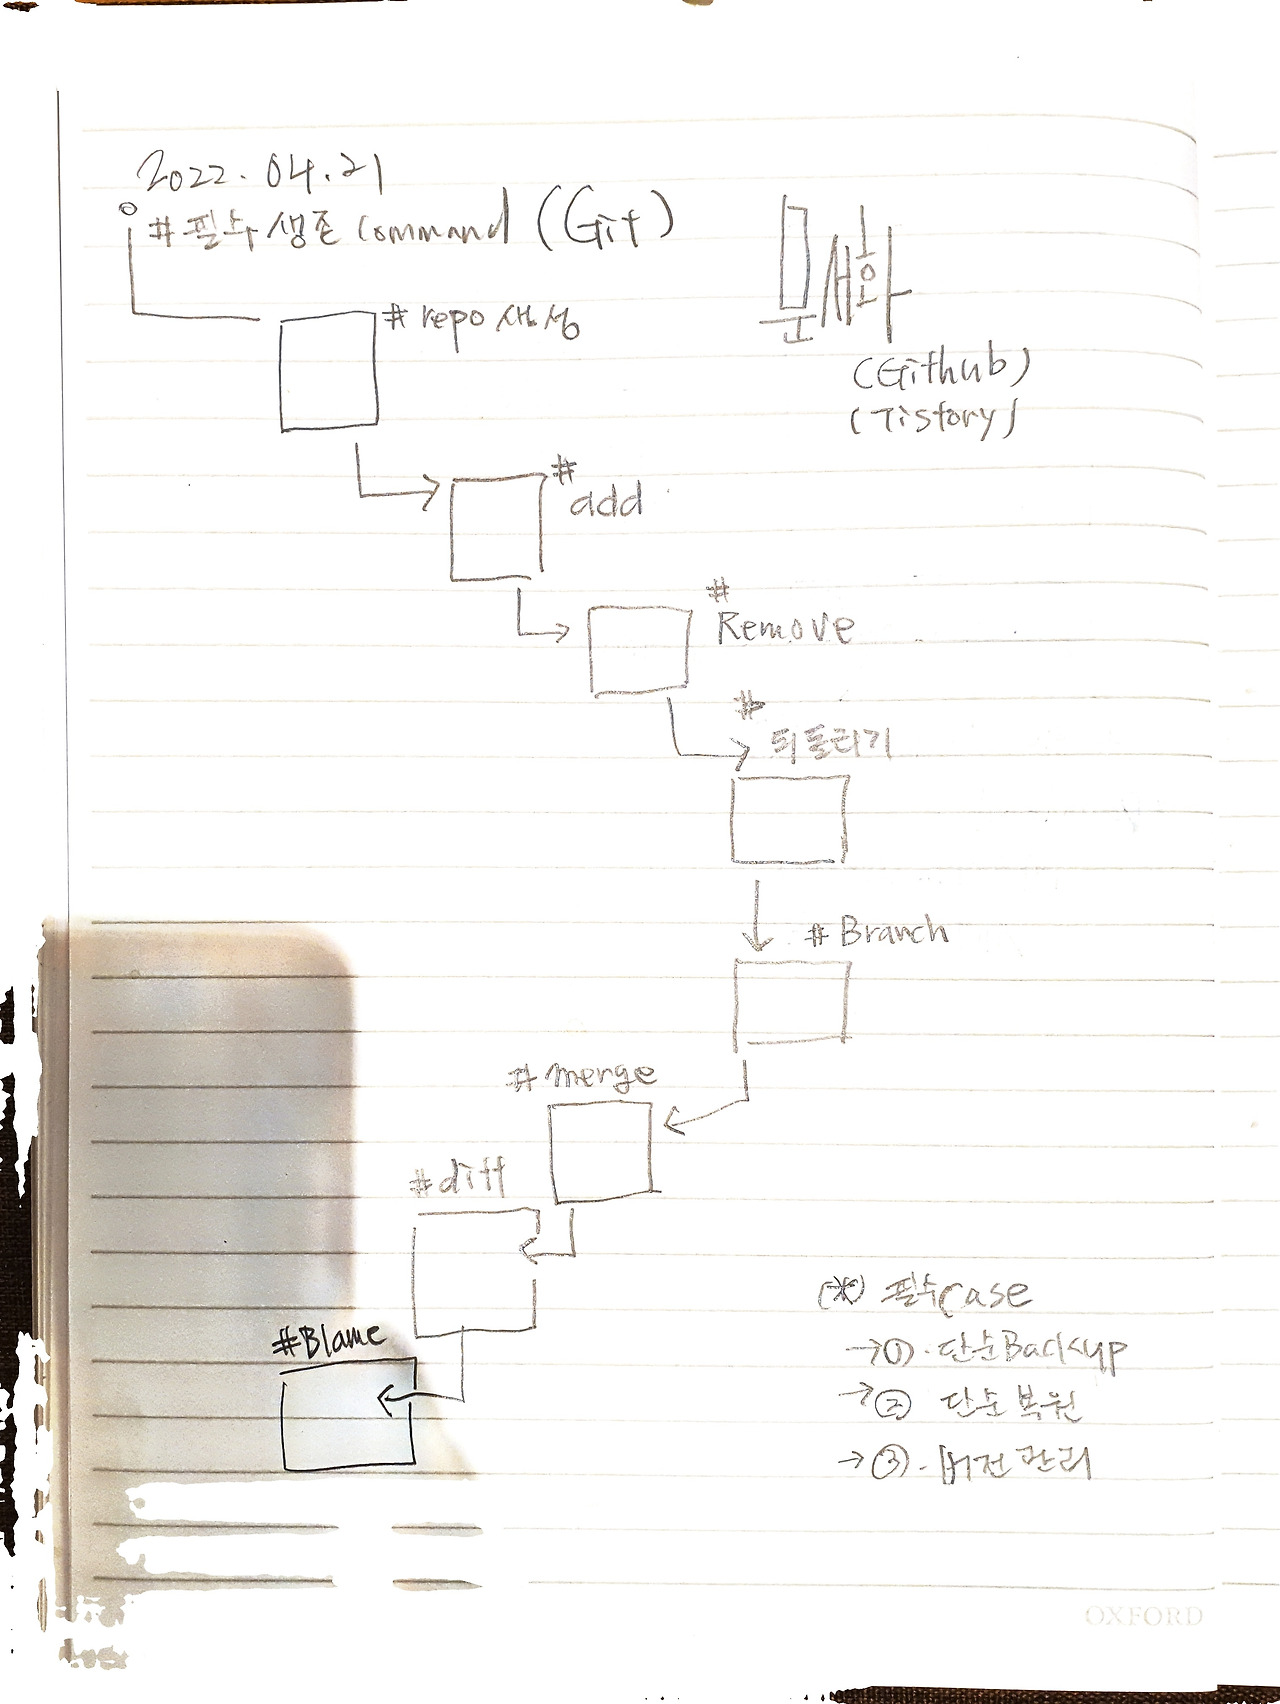 2022.04.21
#필수생존 Command (Git)
#repo 생성
문서화
(Github)
(Tistory)
#
add
#
Remove
#
되돌리기
#Branch
#merge
#diff
#Blame
(*) 필수Case
→①.단순Backup
→② 단순복원
→③.버전관리
OXFORD